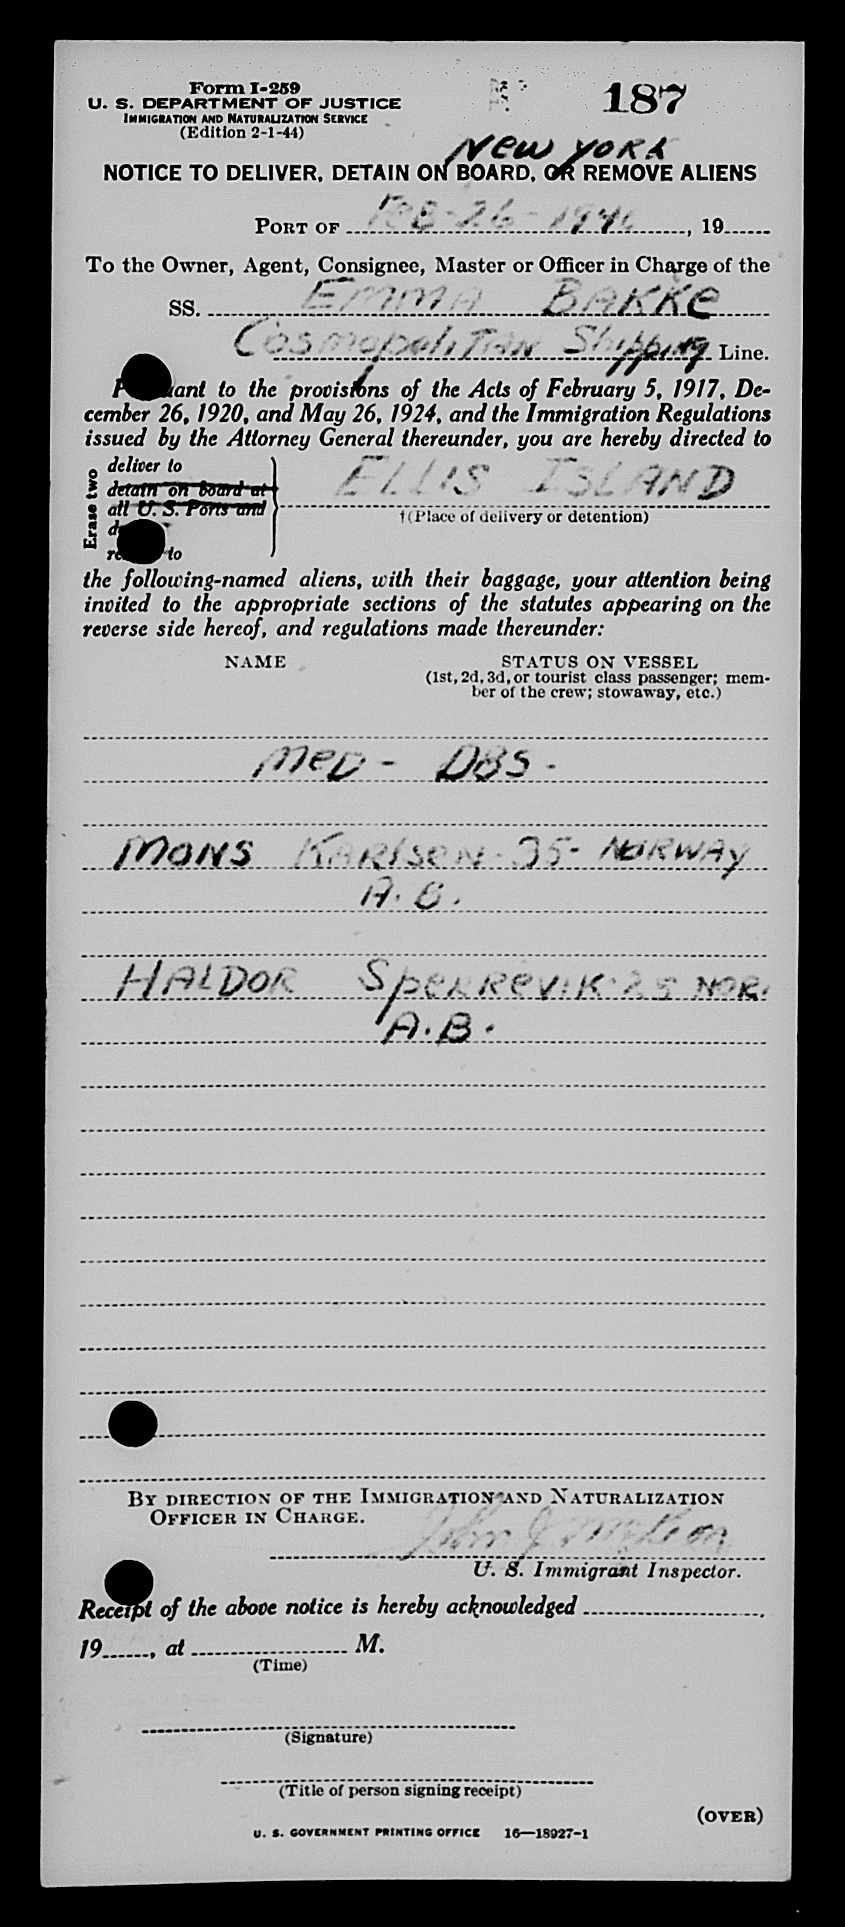 Form I-259
187
U. S. DEPARTMENT OF JUSTICE
IMMIGRATION AND NATURALIZATION SERVICE
(Edition 2-1-44)
New York
NOTICE TO DELIVER, DETAIN ON BOARD, OR REMOVE ALIENS
PORT OF Feb-26-1946, 19
To the Owner, Agent, Consignee, Master or Officer in Charge of the
SS. EMMA BAKKe
Cosmopolitan Shipping Line.
to the provisions of the Acts of February 5, 1917, De-
cember 26, 1920, and May 26, 1924, and the Immigration Regulations
issued by the Attorney General thereunder, you are hereby directed to
Erase two
deliver to
detain on board at
all U. S. Ports and
to
ELLIS ISLAND
†(Place of delivery or detention)
the following-named aliens, with their baggage, your attention being
invited to the appropriate sections of the statutes appearing on the
reverse side hereof, and regulations made thereunder:
NAME
STATUS ON VESSEL
(1st, 2d, 3d, or tourist class passenger; mem-
ber of the crew; stowaway, etc.)
MeD - DBS -
MONS KARlSeN - 35 - NORWAY
A. B.
HALDOR SpeRReviK - 25 NOR.
A. B.
BY DIRECTION OF THE IMMIGRATION AND NATURALIZATION
OFFICER IN CHARGE.
John J
U. S. Immigrant Inspector.
Receipt of the above notice is hereby acknowledged
19, at M.
(Time)
(Signature)
(Title of person signing receipt)
(OVER)
U. S. GOVERNMENT PRINTING OFFICE 16—18927-1